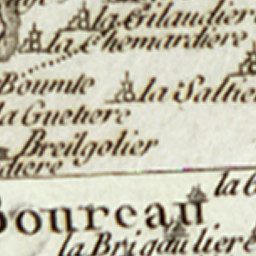 la Gilaudier
la Chemardiere
Boumte
la Saltie
la Guetiere
Breilgolier
diere
la
Boureau
la Brigauliere